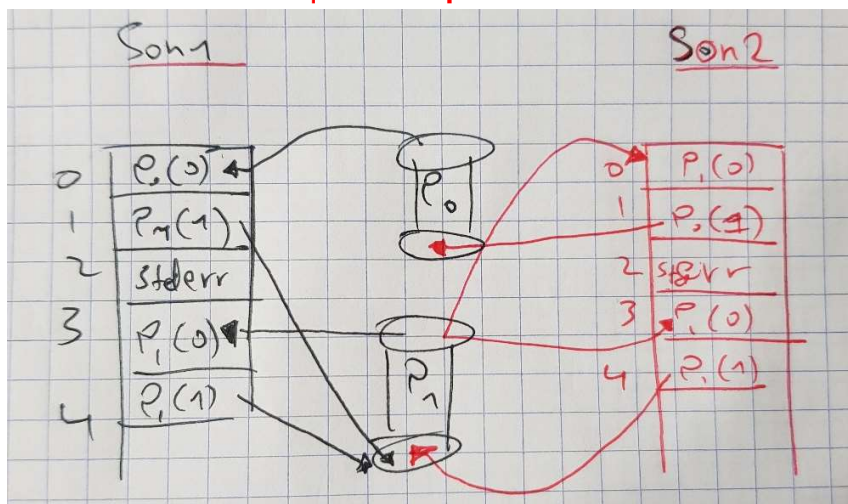 Son1
0 P₀(0)
1 P₁(1)
2 stderr
3 P₁(0)
4 P₁(1)
P₀
P₁
Son2
0 P₁(0)
1 P₀(1)
2 stderr
3 P₁(0)
4 P₁(1)